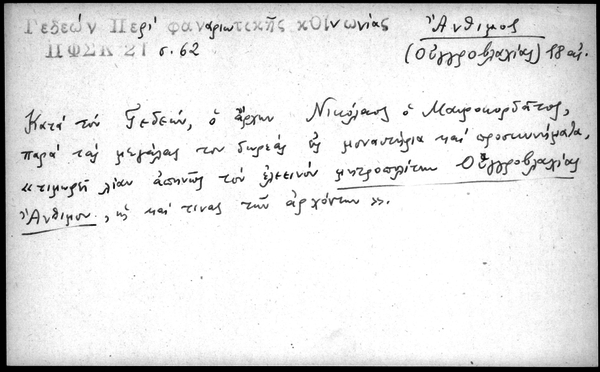 Γεδεών Περί φαναριωτικῆς κοινωνίας
ΠΦΣΚ 21 σ. 62
Ἄνθιμος
(Οὐγγροβλαχίας) 18 αἰ.
Κατά τόν Γεδεών, ὁ ἄρχων Νικόλαος ὁ Μαυροκορδᾶτος,
παρά τάς μεγάλας του δωρεάς εἰς μοναστήρια καί προσκυνήματα,
«τιμωρεῖ λίαν ἀπηνῶς τόν ἐλεεινόν μητροπολίτην Οὐγγροβλαχίας
Ἄνθιμον, ὡς καί τινας τῶν ἀρχόντων».